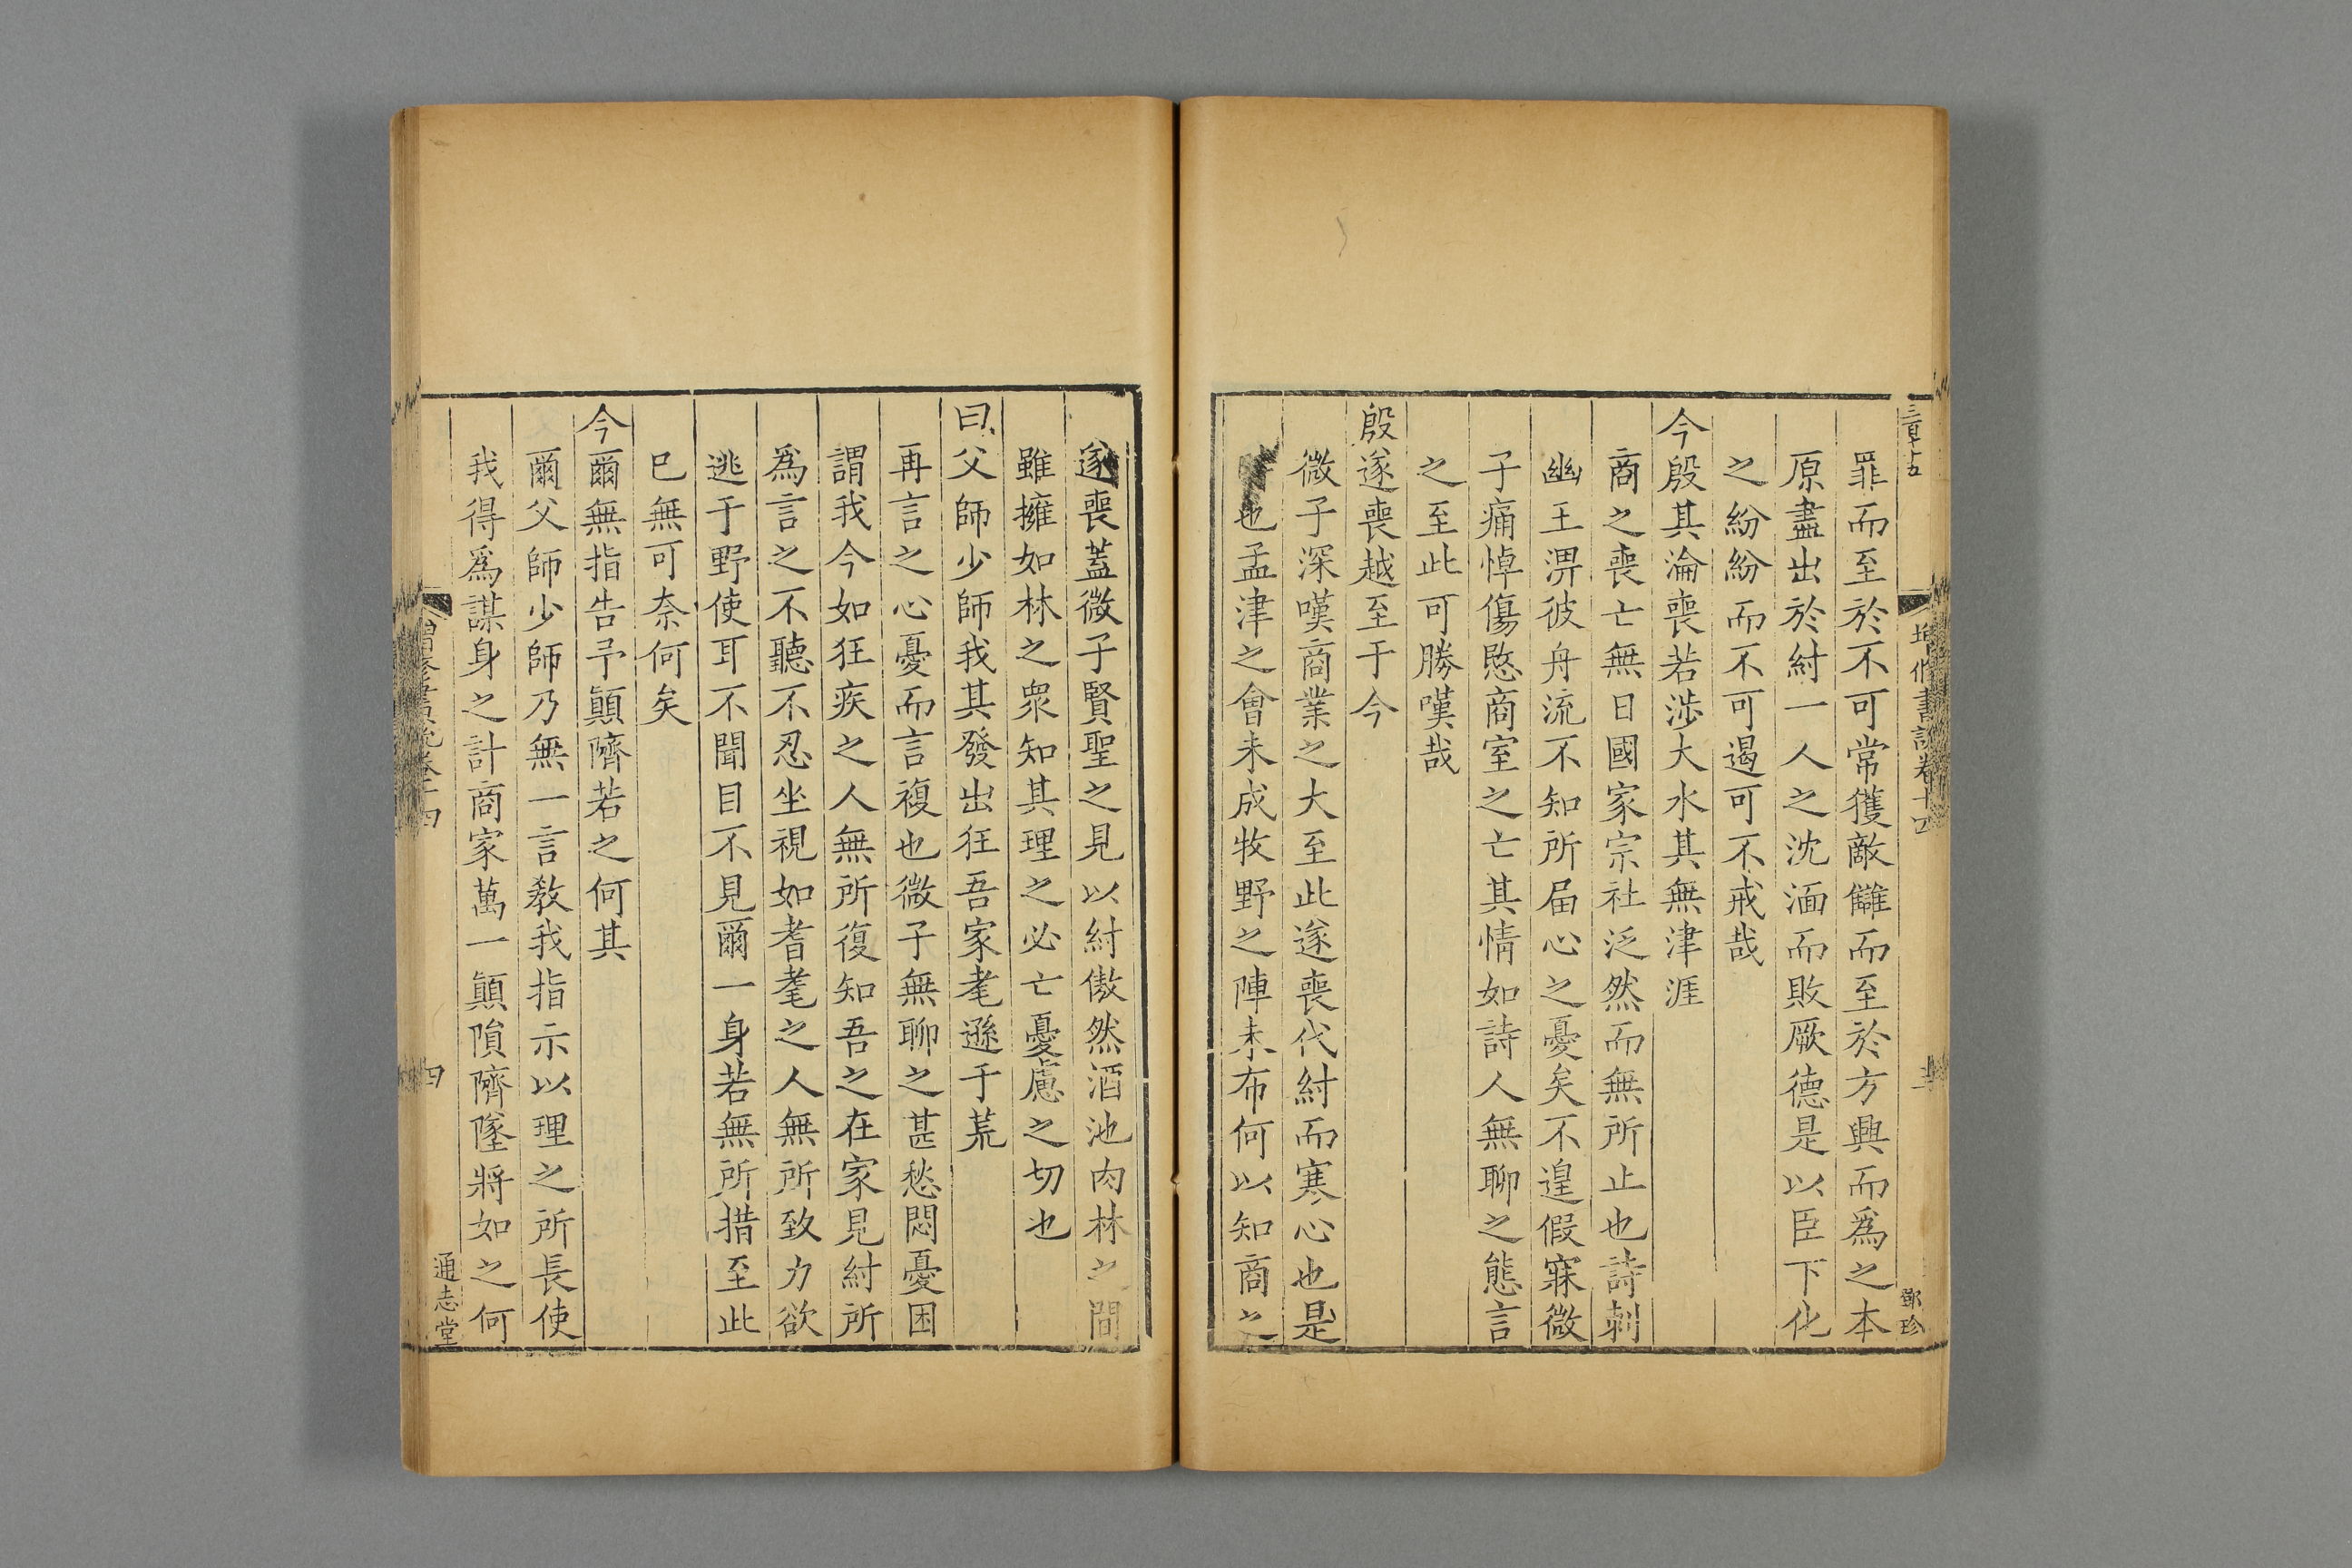 罪而至於不可常獲敵讎而至於方興而爲之本
原盡出於紂一人之沈湎而敗厥德是以臣下化
之紛紛而不可遏可不戒哉
今殷其淪喪若涉大水其無津涯
商之喪亡無日國家宗社泛然而無所止也詩刺
幽王淠彼舟流不知所届心之憂矣不遑假寐微
子痛悼傷愍商室之亡其情如詩人無聊之態言
之至此可勝嘆哉
殷遂喪越至于今
微子深嘆商業之大至此遂喪代紂而寒心也是
也孟津之會未成牧野之陣未布何以知商之
鄧珍
遂喪蓋微子賢聖之見以紂傲然酒池肉林之間
雖擁如林之衆知其理之必亡憂慮之切也
曰父師少師我其發出狂吾家耄遜于荒
再言之心憂而言複也微子無聊之甚愁悶憂困
謂我今如狂疾之人無所復知吾之在家見紂所
爲言之不聽不忍坐視如耆耄之人無所致力欲
逃于野使耳不聞目不見爾一身若無所措至此
已無可奈何矣
今爾無指告予顚隮若之何其
爾父師少師乃無一言教我指示以理之所長使
我得爲謀身之計商家萬一顚隕隮墜將如之何
四
通志堂